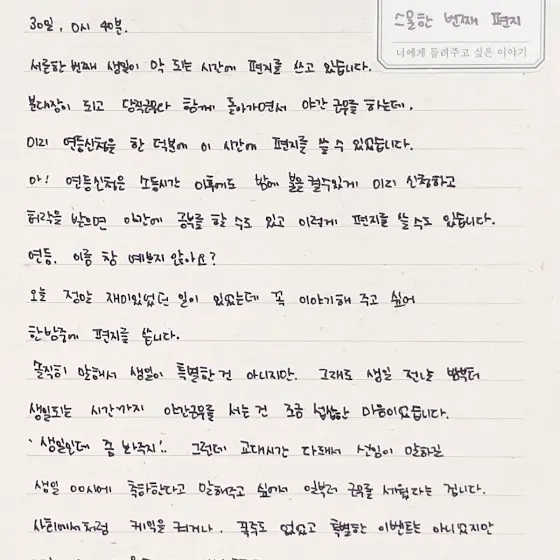 30일, 0시 40분.
스물한 번째 편지
너에게 들려주고 싶은 이야기
서른한 번째 생일이 막 되는 시간에 편지를 쓰고 있습니다.
분대장이 되고 당직근무라 함께 돌아가면서 야간 근무를 하는데,
미리 연등신청을 한 덕분에 이 시간에 편지를 쓸 수 있었습니다.
아! 연등신청은 소등시간 이후에도 밤에 불을 켤수있게 미리 신청하고
허락을 받으면 야간에 공부를 할 수도 있고 이렇게 편지를 쓸 수도 있습니다.
연등. 이름 참 예쁘지 않아요?
오늘 정말 재미있었던 일이 있었는데 꼭 이야기해 주고 싶어
한밤중에 편지를 씁니다.
솔직히 말해서 생일이 특별한건 아니지만. 그래도 생일 전날 밤부터
생일되는 시간까지 야간근무를 서는 건 조금 섭섭한 마음이었습니다.
'생일인데 좀 봐주지'.. 그런데 교대시간 다돼서 선임이 말하길
생일 00시에 축하한다고 말해주고 싶어서 일부러 근무를 세웠다는 겁니다.
사회에서처럼 케익을 켜거나, 폭죽도 없었고 특별한 이벤트는 아니었지만